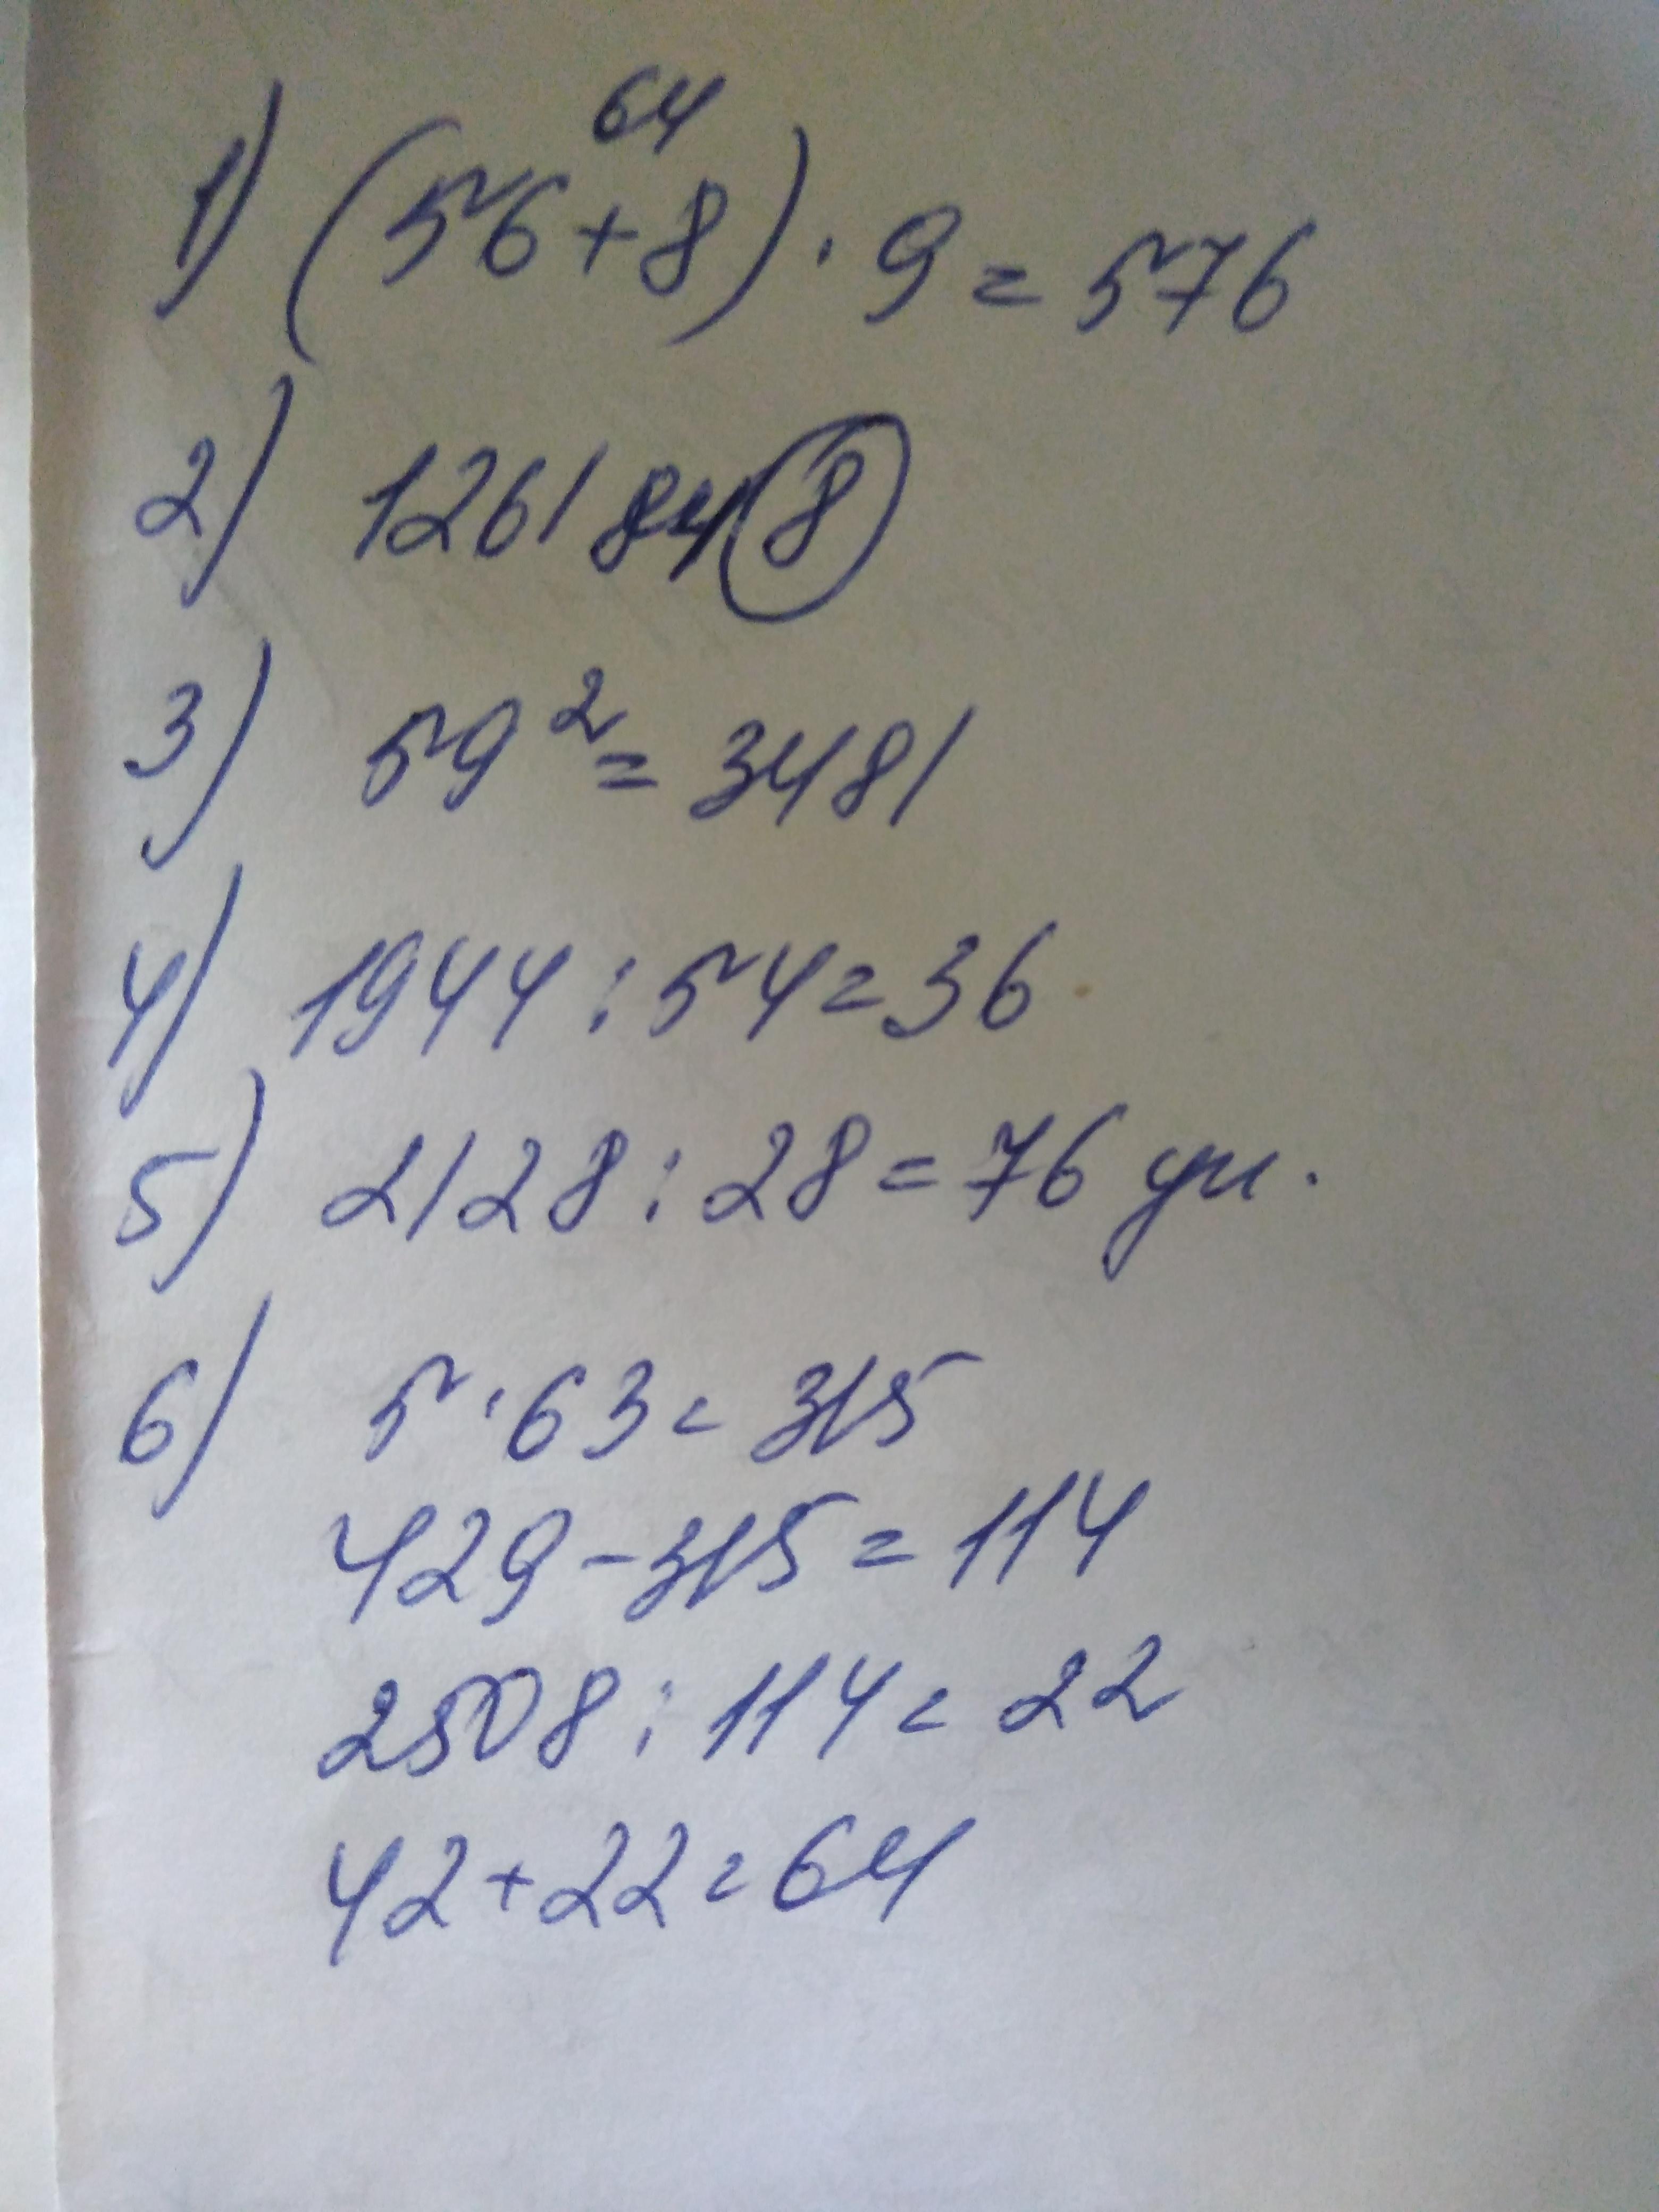 64
1) (56+8) · 9 = 576
2) 1261848
3) 59² = 3481
4) 1944 : 54 = 36
5) 2128 : 28 = 76 уч.
6) 5 · 63 = 315
429 - 315 = 114
2508 : 114 = 22
42 + 22 = 64